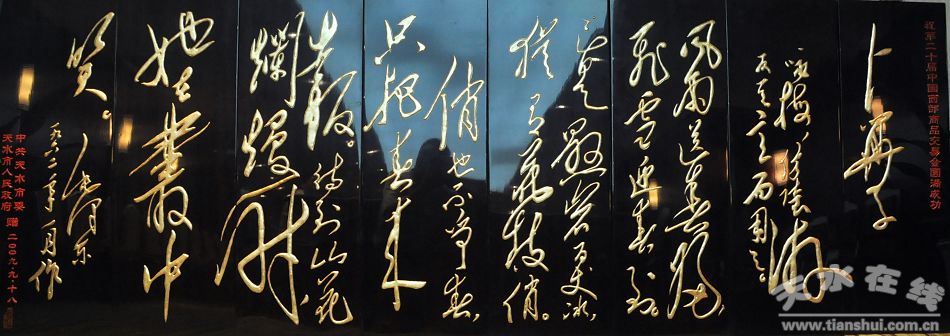 祝第二十届中国西部商品交易会圆满成功
卜算子
咏梅 读陆游
反其意而用之。
風雨送春归,
飛雪迎春到。
已是悬岩百丈冰,
犹有花枝俏。
俏也不争春,
只把春来
報。待到山花
爛熳时
她在叢中
笑。毛泽东
中共天水市委
天水市人民政府 赠 二00九.九.十八
天水在线
www.tianshui.com.cn